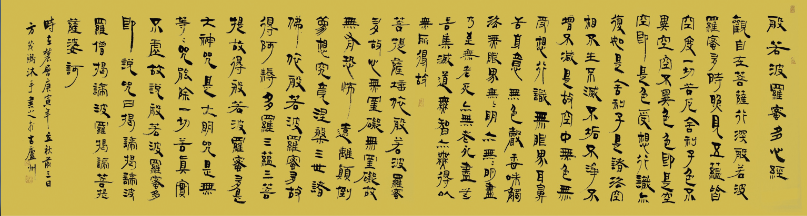 般若波羅蜜多心經
觀自在菩薩行深般若波
羅蜜多時照見五蘊皆
空度一切苦厄舍利子色不
異空空不異色色即是空
空即是色受想行識亦
復如是舍利子是諸法空
相不生不滅不垢不淨不
增不減是故空中無色無
受想行識無眼耳鼻
舌身意無色聲香味觸
法無眼界無無明亦無無明盡
乃至無老死亦無老死盡無
苦集滅道無智亦無得以
無所得故
菩提薩埵依般若波羅蜜
多故心無罣礙無罣礙故
無有恐怖遠離顛倒
夢想究竟涅槃三世諸
佛依般若波羅蜜多故
得阿耨多羅三藐三菩
提故得般若波羅蜜多是
大神咒是大明咒是無
等等咒能除一切苦真實
不虛故說般若波羅蜜多
即說咒曰揭諦揭諦波
羅僧揭諦波羅揭諦菩提
薩婆訶
時在農曆庚寅年立秋前三日
沐手書之於古廬州